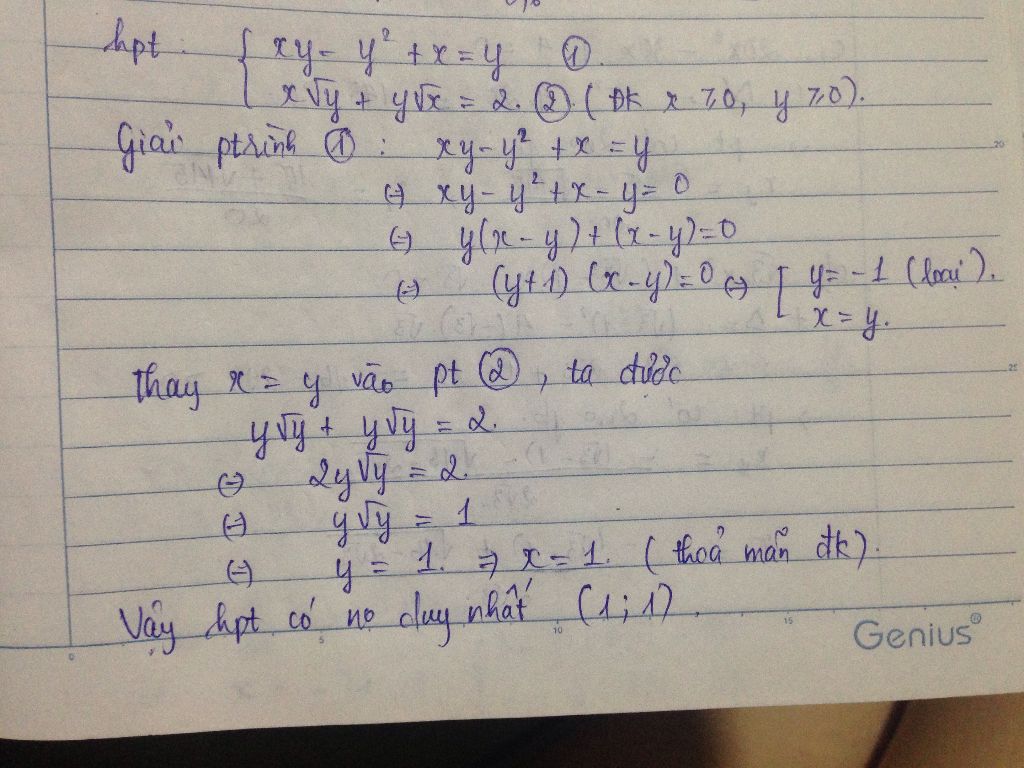 hpt : { xy - y² + x = y ①.
x√y + y√x = 2. ② (ĐK x ⩾ 0, y ⩾ 0).
Giải ptrình ① : xy - y² + x = y
⇔ xy - y² + x - y = 0
⇔ y(x - y) + (x - y) = 0
⇔ (y+1) (x - y) = 0 ⇔ [ y = -1 (loại).
x = y.
Thay x = y vào pt ②, ta được
y√y + y√y = 2.
⇔ 2y√y = 2.
⇔ y√y = 1
⇔ y = 1. ⇒ x = 1. (thoả mãn đk).
Vậy hpt có no duy nhất (1 ; 1).
0 5 10 15
20
25
Genius®